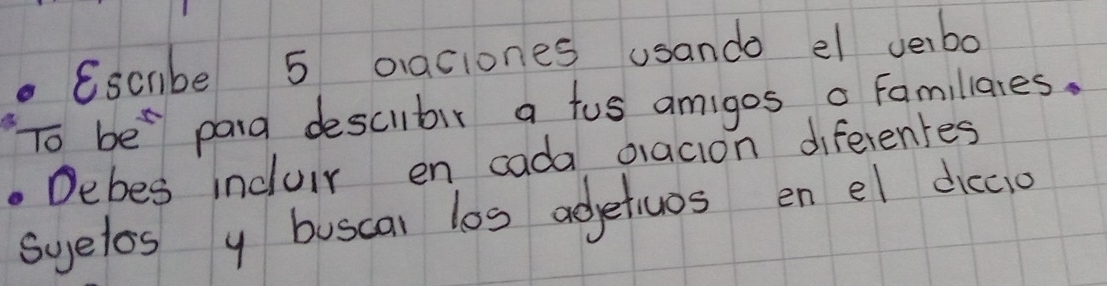 • Escribe 5 oraciones usando el verbo
"To be" para describir a tus amigos o Familiares.
• Debes incluir en cada oracion diferentes
Sujetos y buscar los adjetivos en el diccio